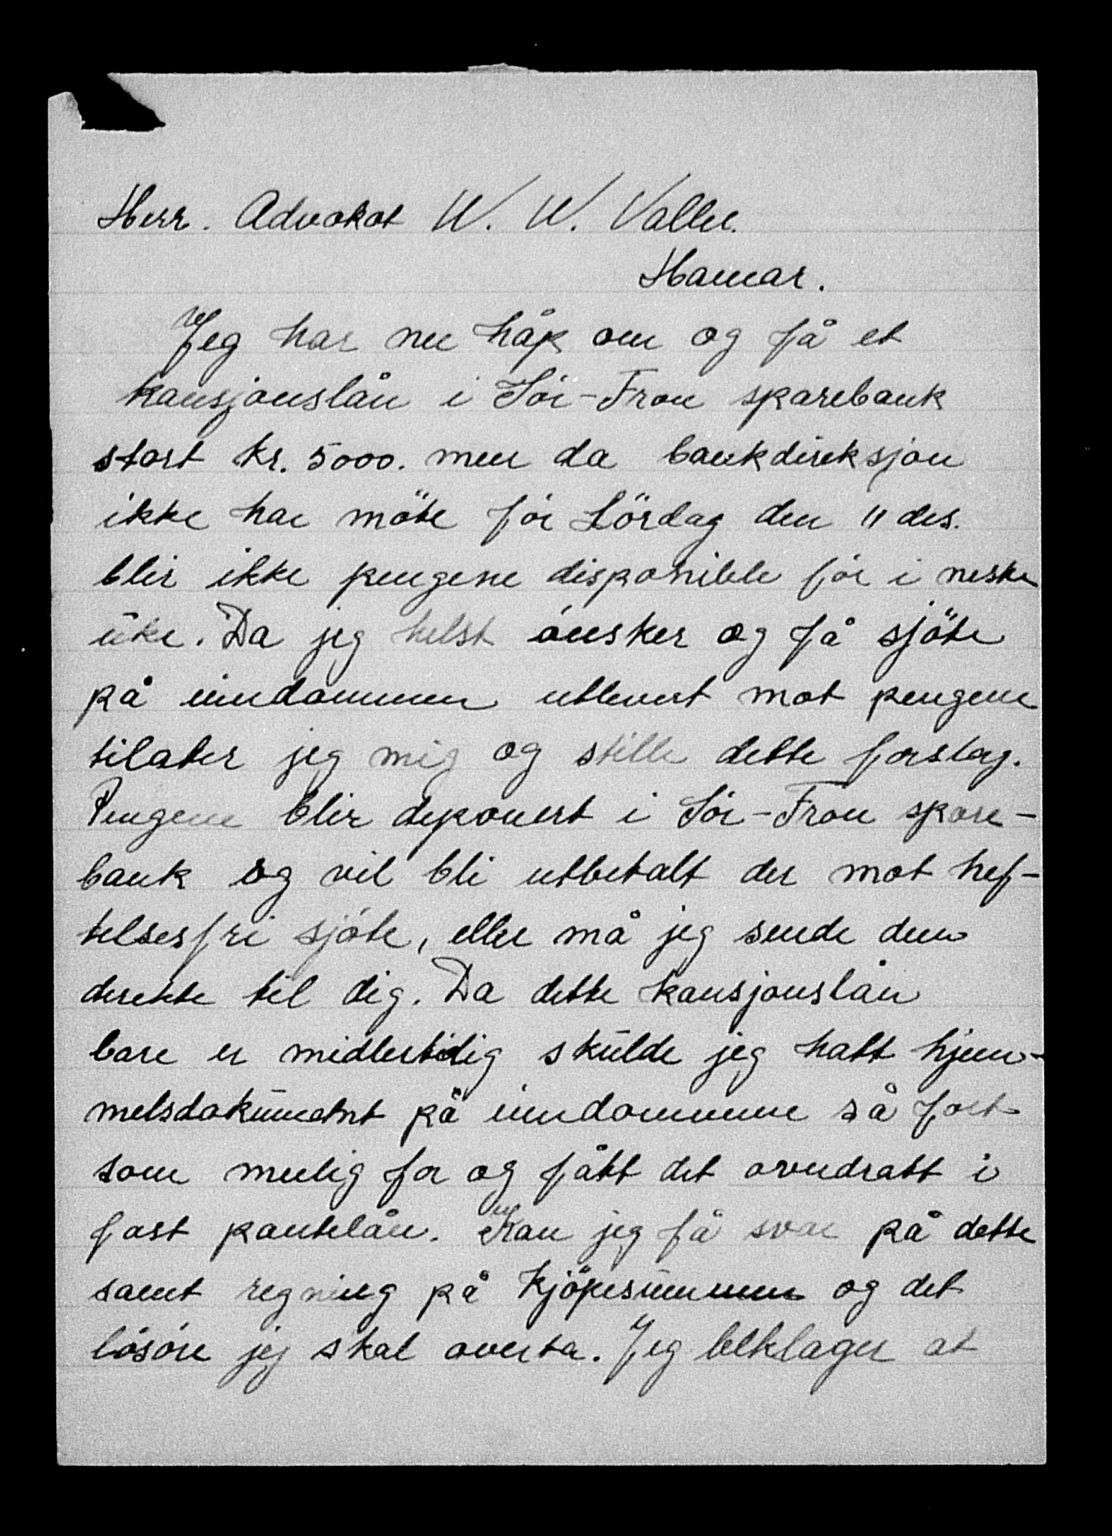 Herr. Advokat W. W. Valle.
Hamar.
Jeg har nu håp om og få et
kausjonslån i Sör-Fron sparebank
stort kr. 5000. men da bankdireksjon
ikke har möte för Lördag den 11 des.
blir ikke pengene disponible för i neste
uke. Da jeg helst önsker og få sjöte
på eiendommen utlevert mot pengene
tilater jeg mig og stille dette forslag.
Pengene blir deponert i Sör-Fron spare-
bank og vil bli utbetalt der mot hef-
telsesfri sjöte, eller må jeg sende dem
direkte til dig. Da dette kausjonslån
bare er midlertidig skulde jeg hatt hjem-
melsdokument på eiendommene så fort
som mulig for og fått det overdratt i
fast pantelån. Kan jeg få svar på dette
samt regning på kjöpesummen og det
lösöre jej skal overta. Jeg beklager at